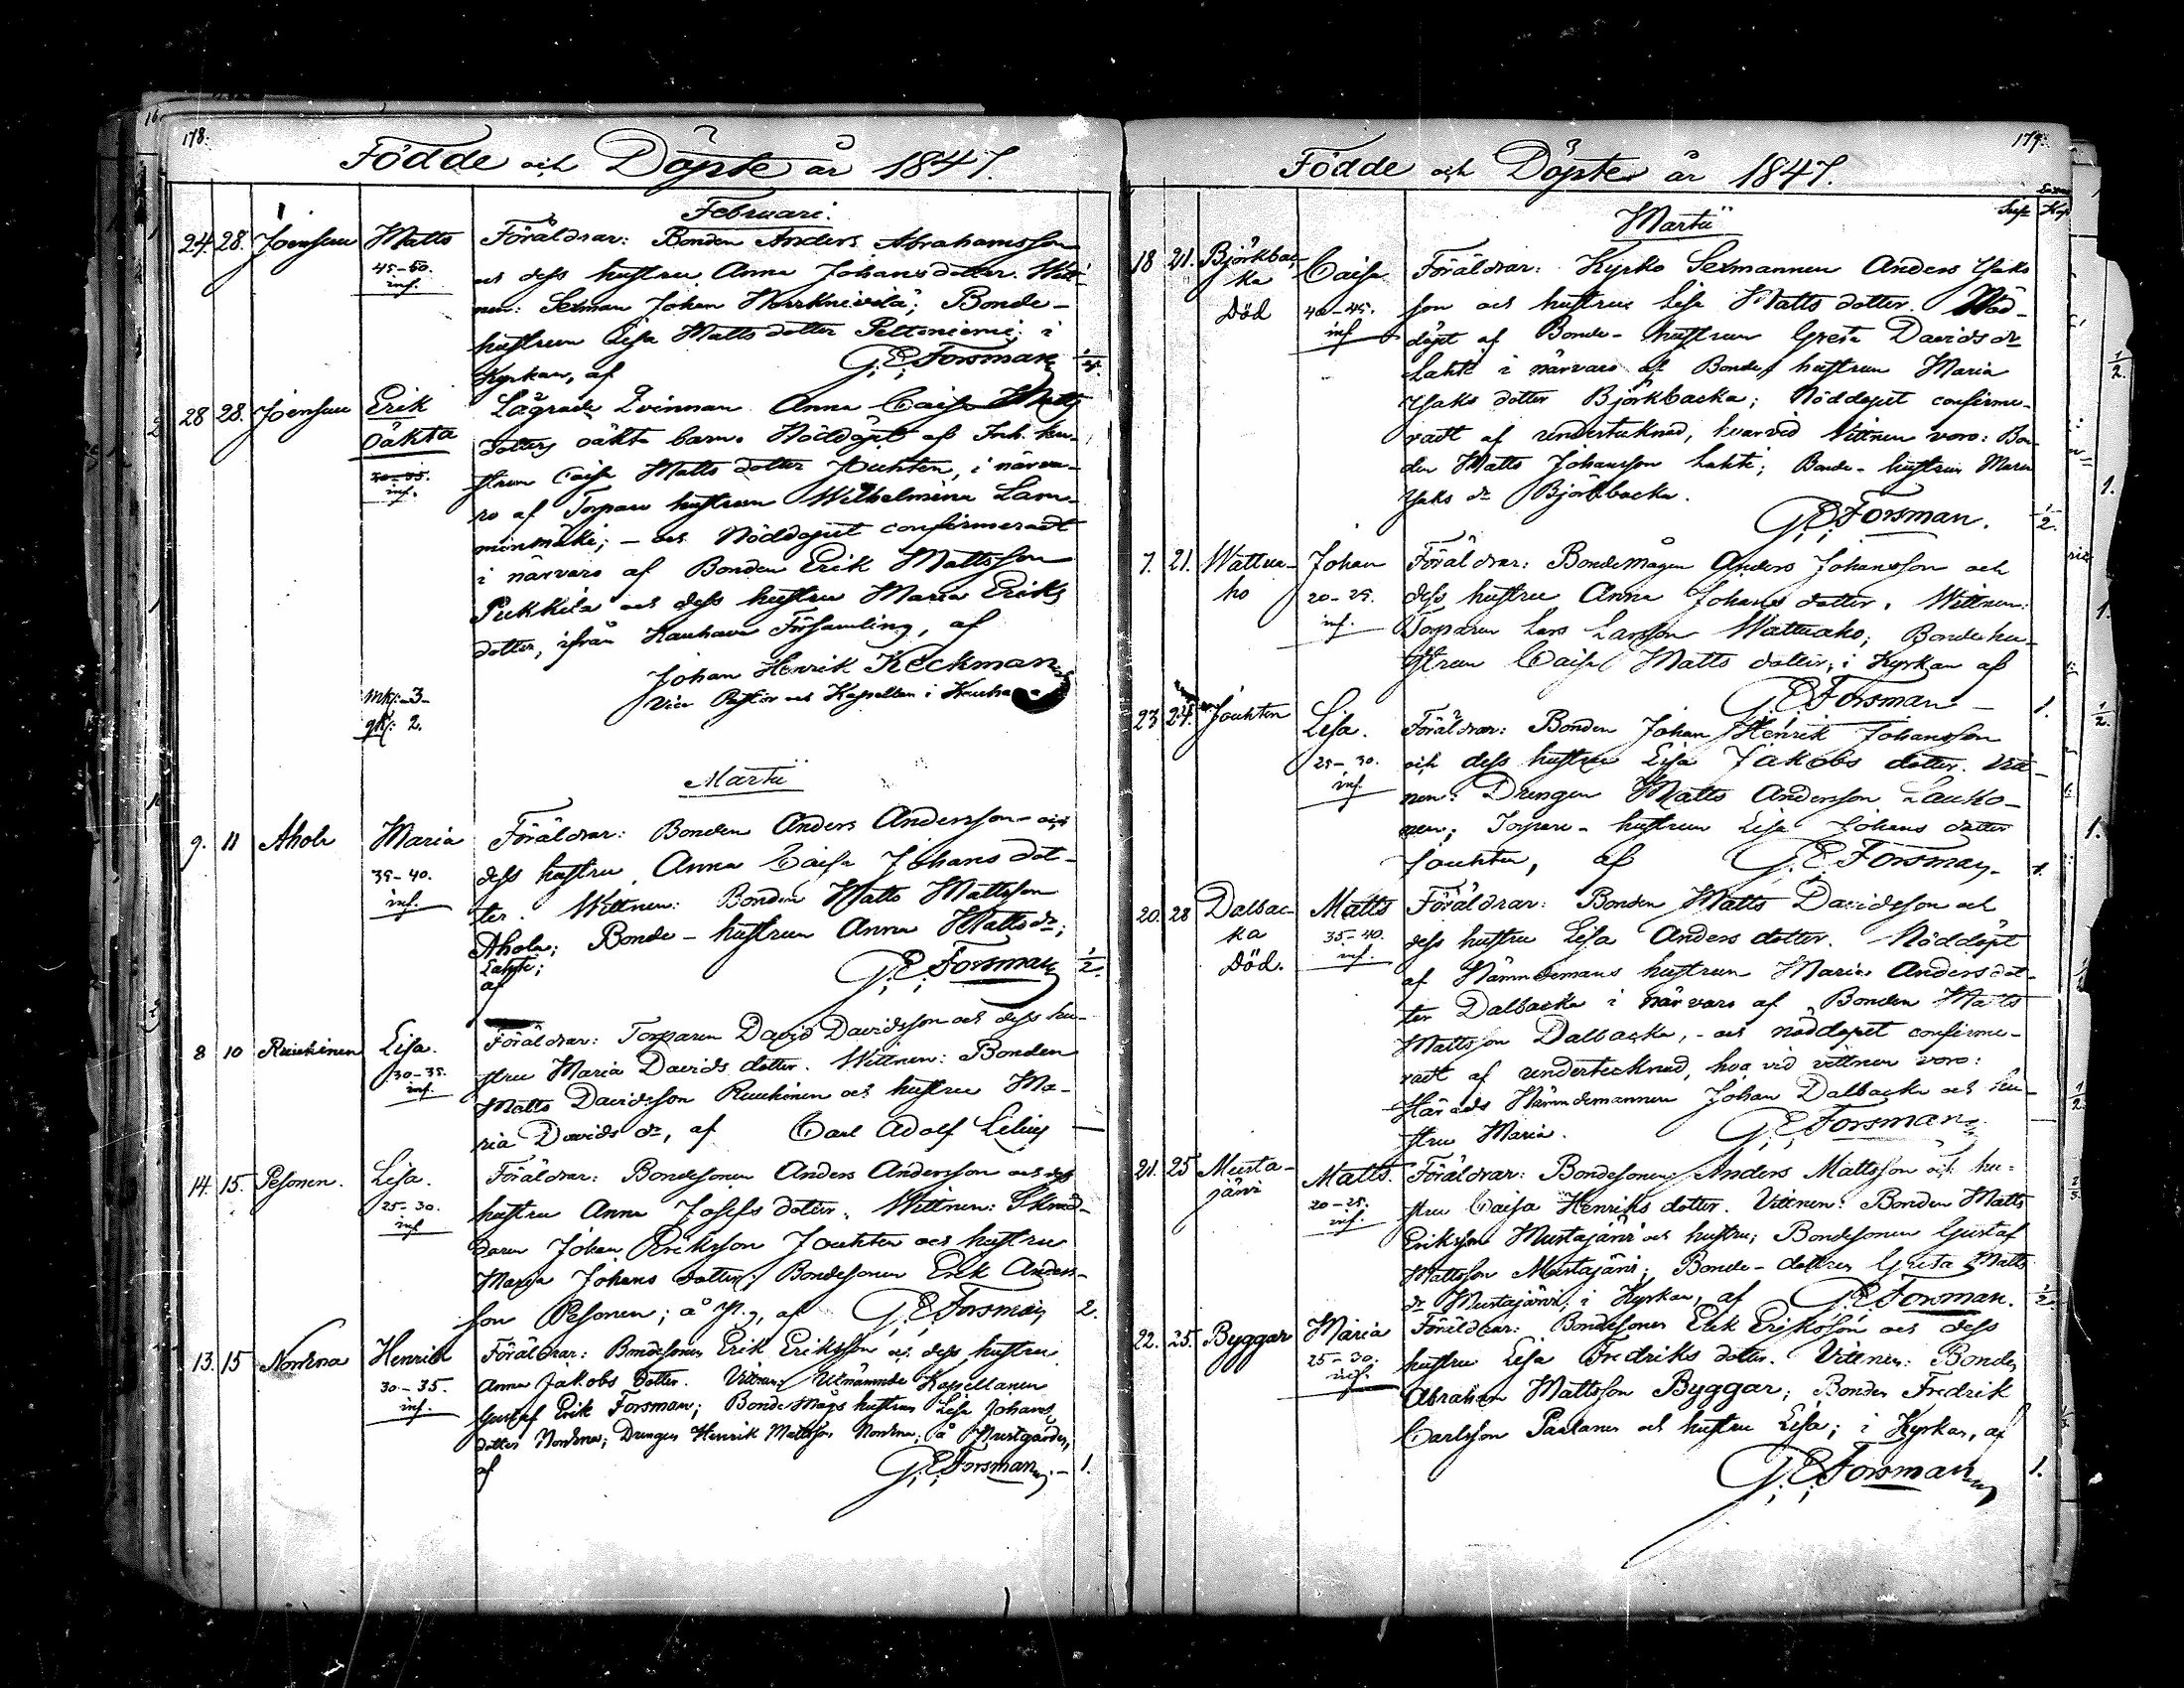 178.
Födde och Döpte år 1847.
Februari.
24. 28. Joensuu Matts Föräldrar: Bonden Anders Abrahamsson
45-50. och dess hustru Anna Johans dotter. Witt-
inf. nen: Sexman Johan Horrknivilä; Bonde-
hustrun Lisa Matts dotter Peltoniemi; i
Kyrkan, af G. E. Forsman 1/2.
28 28. Joensuu Erik Lägrade Qvinnan Anna Caisa Matts
Oäkta dotters oäkta barn. Nöddöpt af Inh. hu-
30-35. strun Caisa Matts dotter Jouhten, i närva-
inf. ro af Torpare hustrun Wilhelmina Lam-
minmäki; - och Nöddopet confirmeradt
i närvaro af Bonden Erik Mattsson
Pukkila och dess hustru Maria Eriks
dotter, ifrån Kauhava Församling, af
Johan Henrik Keckman
Vice Pastor och Kapellan i Kauhava
mk: 3-
qk: 2.
Martii
9. 11 Ahola Maria Föräldrar: Bonden Anders Andersson och
35-40. dess hustru Anna Caisa Johans dot-
inf. ter. Wittnen: Bonden Matts Mattsson
Ahola; Bonde-hustrun Anna Matts dr
af G. E. Forsman 1/2.
8 10 Ruuhinen Lisa. Föräldrar: Torparen David Davidsson och dess hu-
30-35. stru Maria Davids dotter. Wittnen: Bonden
inf. Matts Davidsson Ruuhinen och hustru Ma-
ria Davids dr, af Carl Adolf Lilius
14. 15. Pesonen. Lisa. Föräldrar: Bondesonen Anders Andersson och dess
25-30. hustru Anna Josefs dotter. Wittnen: Skräd-
inf. daren Johan Eriksson Jouhten och hustru
Maria Johans dotter; Bondesonen Erik Anders-
son Pesonen; å af G. E. Forsman 2.
13. 15 Norkna Henrik Föräldrar: Bondesonen Erik Eriksson och dess hustru
30-35. Anna Jakobs dotter. Vittnen: Utnämnde Kapellanen
inf. Gustaf Erik Forsman; Bonde Mågs hustrun Lisa Johans
dotter Norkna; Drengen Henrik Mattsson Norkna; å Prestgården,
af G. E. Forsman. 1.
179.
Födde och Döpte år 1847.
Martii
18 21. Björkbac- Caisa Föräldrar: Kyrko Sexmannen Anders Isaks
ka 40-45. son och hustru Lisa Matts dotter. Nöd-
Död inf. döpt af Bonde-hustrun Greta Davids dr
Lahti i närvaro af Bonde hustrun Maria
Isaks dotter Björkbacka; Nöddopet confirme-
radt af undertecknad, hvarvid Vittnen voro: Bon-
den Matts Johansson Lahti; Bonde-hustrun Maria
Isaks dr Björkbacka.
G. E. Forsman. 1/2.
7. 21. Wattua- Johan Föräldrar: Bondemågen Anders Johansson och
ho 20-25. dess hustru Anna Johans dotter. Wittnen:
inf. Torparen Lars Larsson Wattuaho; Bonde hu-
strun Caisa Matts dotter; i Kyrkan af
G. E. Forsman 1.
23 24. Jouhten Lisa. Föräldrar: Bonden Johan Henrik Johansson
25-30. och dess hustru Lisa Jakobs dotter. Vitt-
inf. nen: Drengen Matts Andersson Lauko-
nen; Torpare-hustrun Lisa Johans dotter
Jouhten, af G. E. Forsman. 1.
20. 28 Dalbac- Matts Föräldrar: Bonden Matts Davidsson och
ka 35-40. dess hustru Lisa Anders dotter. Nöddöpt
Död. inf. af Nämndemans hustrun Maria Anders dot-
ter Dalbacka i närvaro af Bonden Matts
Mattsson Dalbacka, - och nöddopet confirme-
radt af undertecknad, hvarvid vittnen voro:
Härads Nämndemannen Johan Dalbacka och hu-
stru Maria. G. E. Forsman
21. 25 Musta- Matts. Föräldrar: Bondesonen Anders Mattsson och hu-
järvi 20-25. stru Caisa Henriks dotter. Vittnen: Bonden Matts
inf. Eriksson Mustajärvi och hustru; Bondesonen Gustaf
Mattsson Mustajärvi; Bonde-dottren Greta Matts
dr Mustajärvi; i Kyrkan, af G. E. Forsman. 1/2
22. 25. Byggar Maria Föräldrar: Bondesonen Erik Eriksson och dess
25-30. hustru Lisa Fredriks dotter. Vittnen: Bonden
inf. Abraham Mattsson Byggar; Bonden Fredrik
Carlsson Paalanen och hustru Lisa; i Kyrkan, af
G. E. Forsman 1.